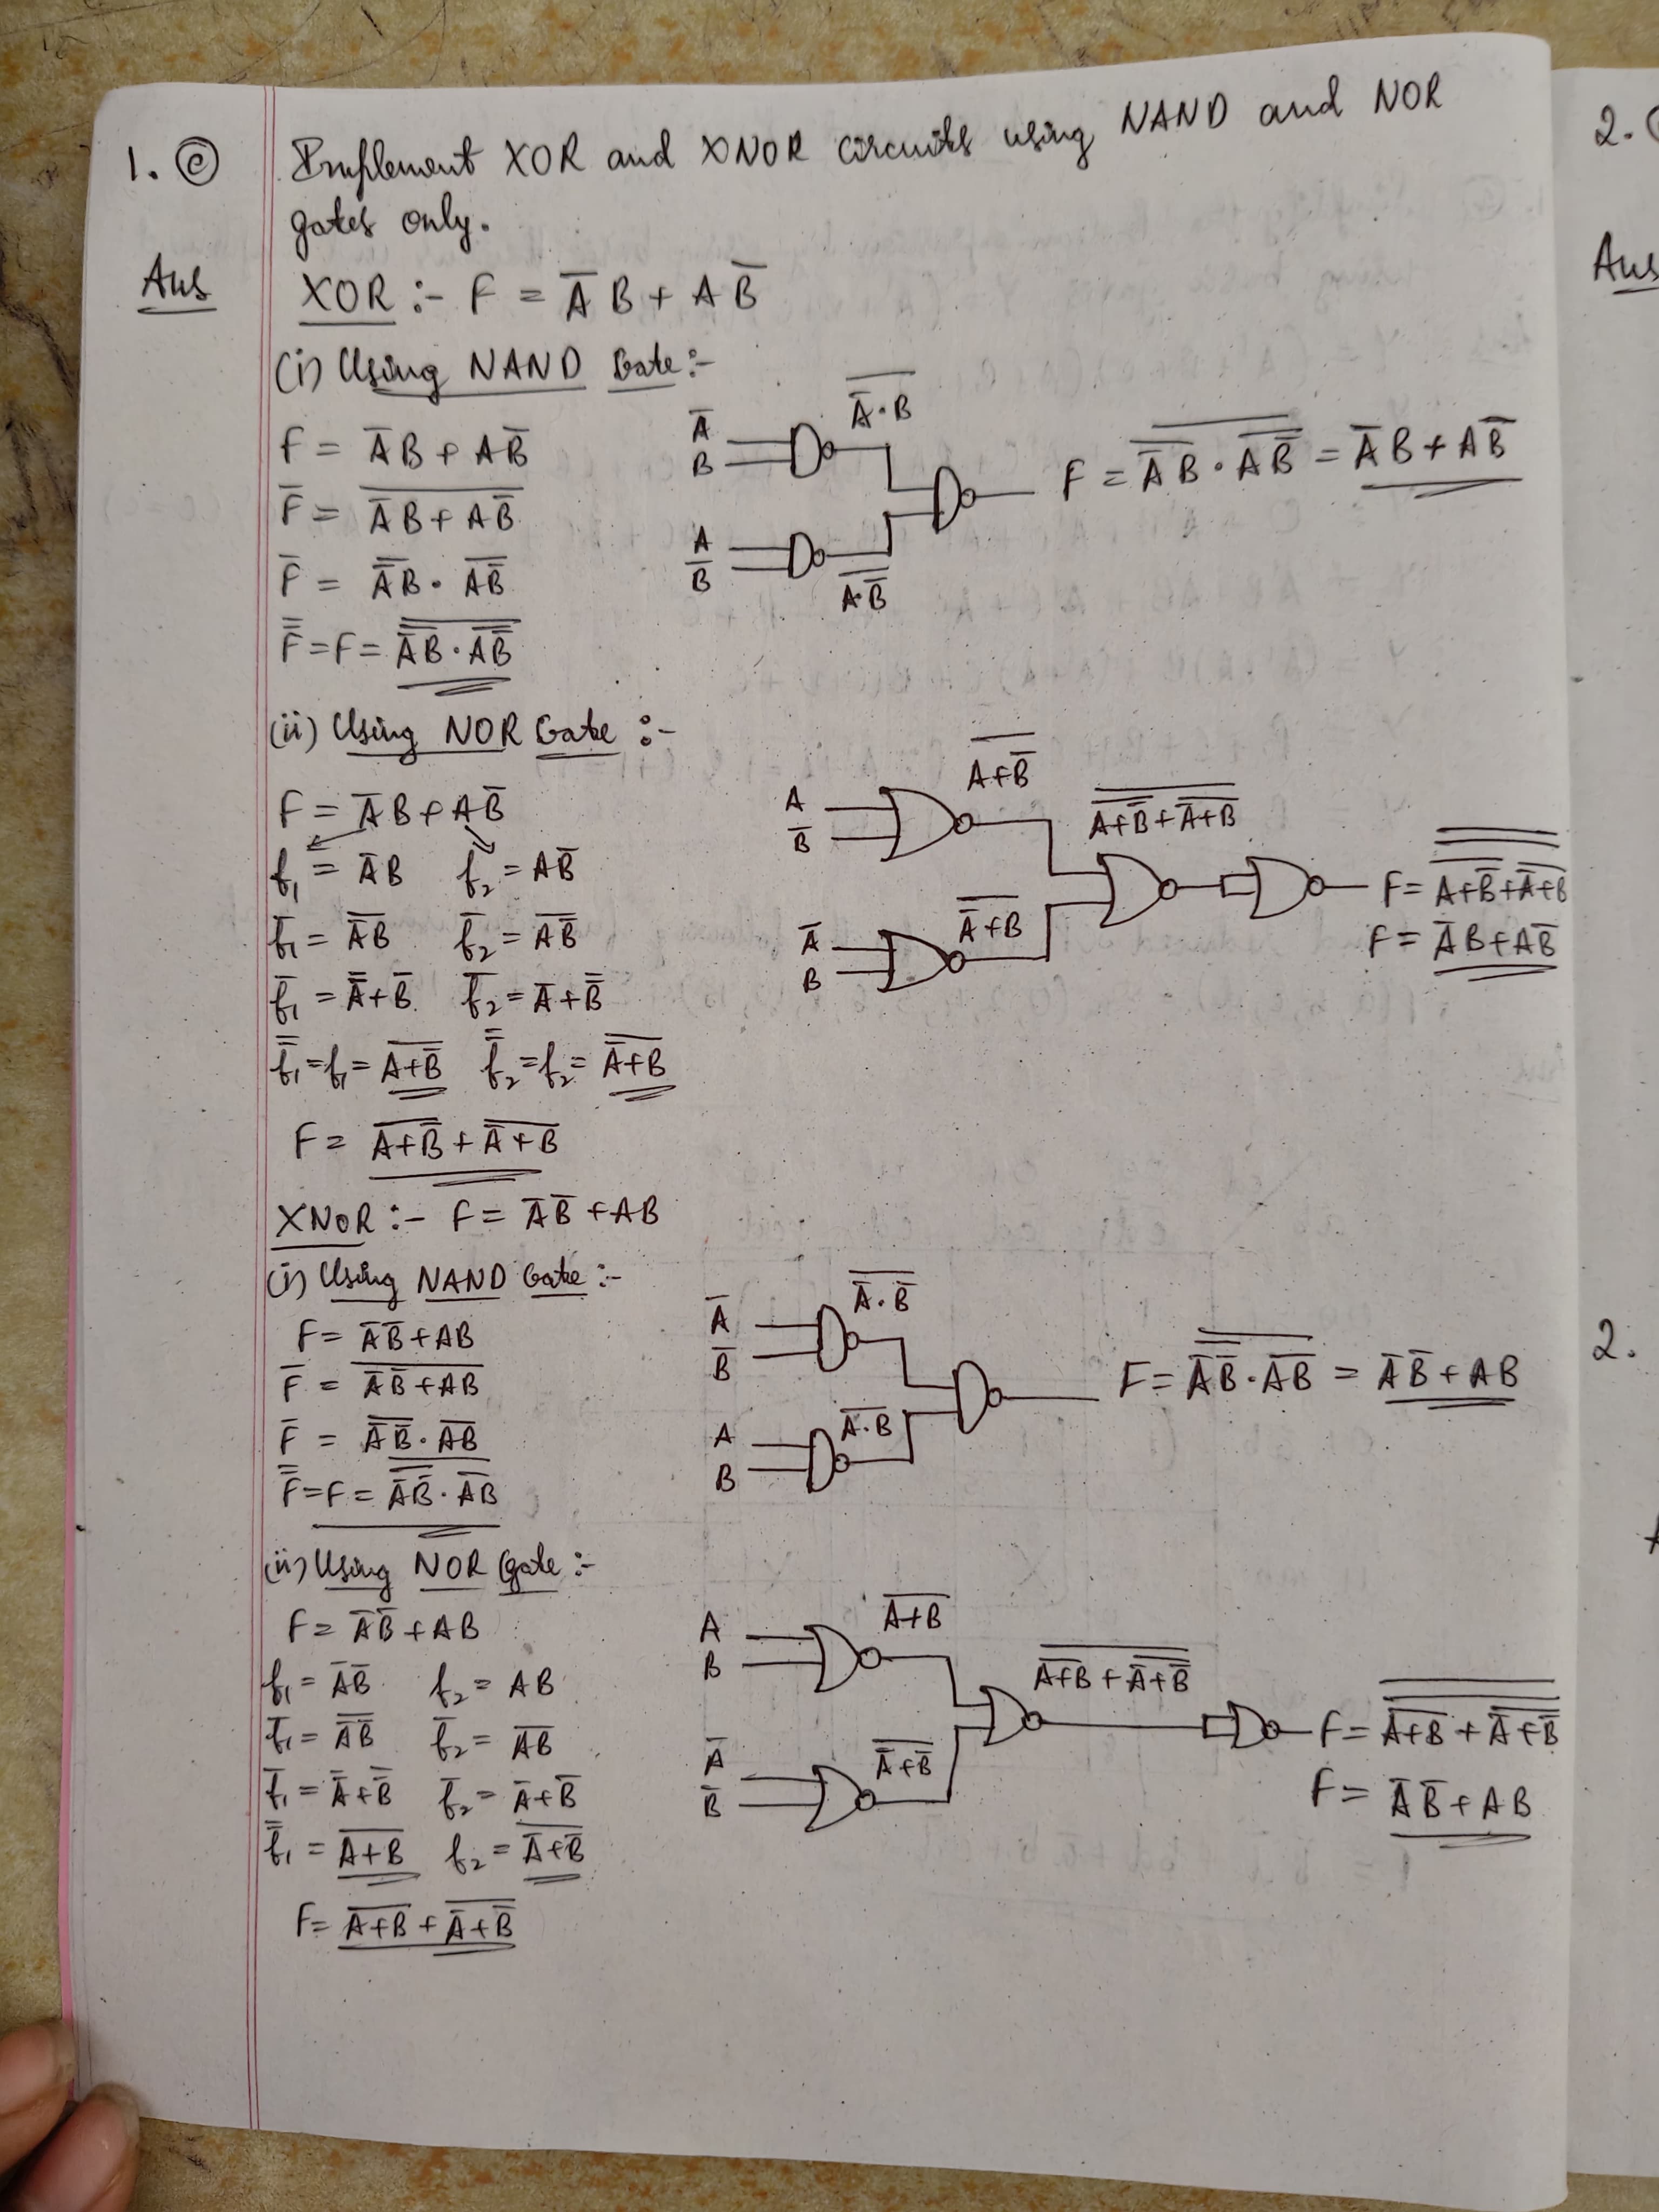 1. ⓒ Implement XOR and XNOR circuits using NAND and NOR
gates only.
Ans XOR :- F = A̅ B + A B̅
(i) Using NAND Gate :-
F = A̅ B + A B̅
F̅ = \overline{A̅ B + A B̅}
F̅ = \overline{A̅ B} · \overline{A B̅}
\overline{F̅} = F = \overline{\overline{A̅ B} · \overline{A B̅}}
A̅
B
\overline{A̅ · B}
A
B̅
\overline{A·B̅}
F = \overline{\overline{A̅ B} · \overline{A B̅}} = A̅ B + A B̅
(ii) Using NOR Gate :-
F = A̅ B + A B̅
f₁ = A̅ B f₂ = A B̅
f̅₁ = \overline{A̅ B} f̅₂ = \overline{A B̅}
f̅₁ = \overline{A̅} + B̅ f̅₂ = A̅ + \overline{B̅}
\overline{f̅₁} = f₁ = \overline{A + B̅} \overline{f̅₂} = f₂ = \overline{A̅ + B}
F = \overline{A + B̅} + \overline{A̅ + B}
A
B̅
\overline{A + B̅}
A̅
B
\overline{A̅ + B}
\overline{\overline{A + B̅} + \overline{A̅ + B}}
F = \overline{\overline{\overline{A + B̅} + \overline{A̅ + B}}}
F = A̅ B + A B̅
XNOR :- F = A̅ B̅ + AB
(i) Using NAND Gate :-
F = A̅ B̅ + AB
F̅ = \overline{A̅ B̅ + AB}
F̅ = \overline{A̅ B̅} · \overline{AB}
\overline{F̅} = F = \overline{\overline{A̅ B̅} · \overline{AB}}
A̅
B̅
\overline{A̅ · B̅}
A
B
\overline{A · B}
F = \overline{\overline{A̅ B̅} · \overline{AB}} = A̅ B̅ + AB
(ii) Using NOR Gate :-
F = A̅ B̅ + AB
f₁ = A̅ B̅ f₂ = AB
f̅₁ = \overline{A̅ B̅} f̅₂ = \overline{AB}
f̅₁ = \overline{A̅} + \overline{B̅} f̅₂ = A̅ + B̅
\overline{f̅₁} = \overline{A + B} f₂ = \overline{A̅ + B̅}
F = \overline{A + B} + \overline{A̅ + B̅}
A
B
\overline{A + B}
A̅
B̅
\overline{A̅ + B̅}
\overline{\overline{A + B} + \overline{A̅ + B̅}}
F = \overline{\overline{\overline{A + B} + \overline{A̅ + B̅}}}
F = A̅ B̅ + AB
2.
Ans
2.